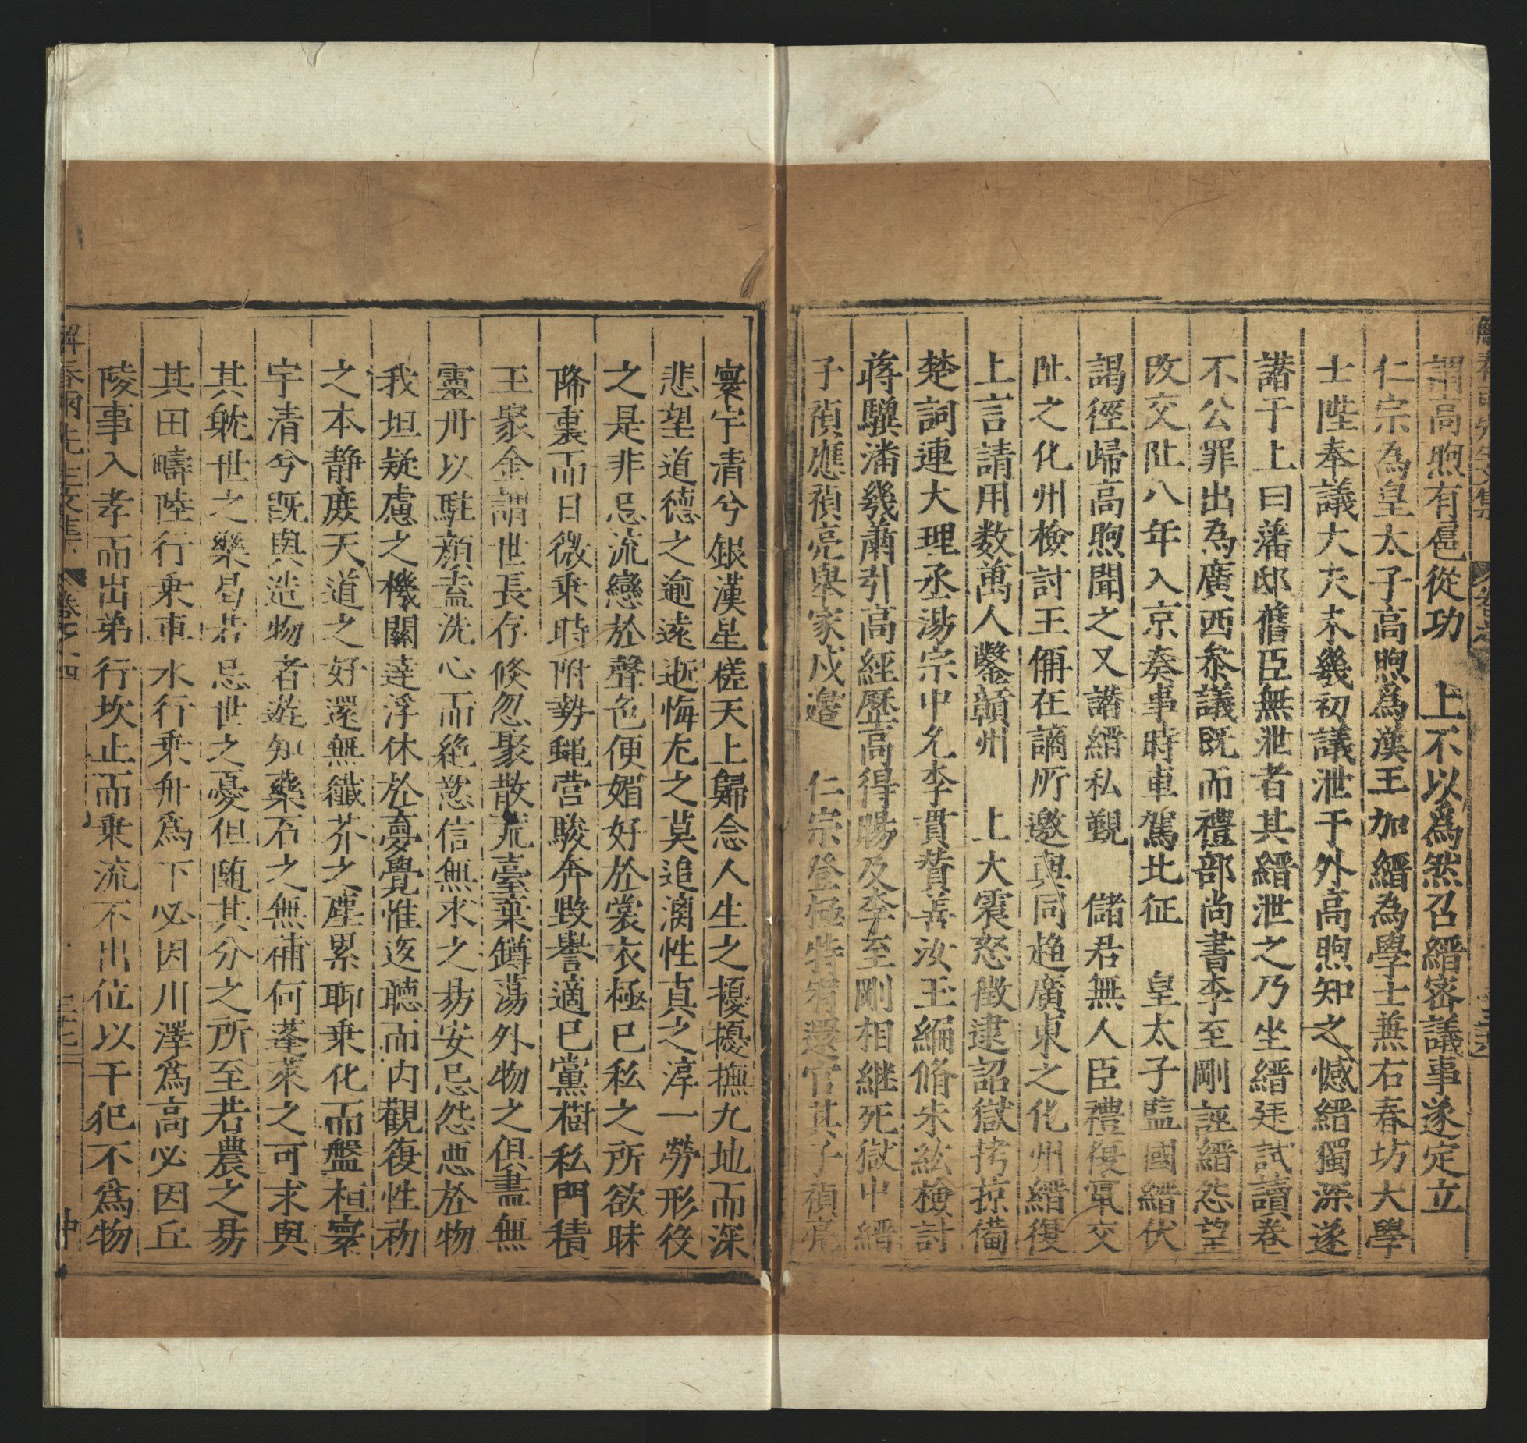 謂高煦有扈從功　上不以爲然召縉密議事遂定立
仁宗為皇太子高煦爲漢王加縉為學士兼右春坊大學
士陞奉議大夫未幾初議泄于外高煦知之憾縉獨深遂
譖于上曰藩邸舊臣無泄者其縉泄之乃坐縉廷試讀卷
不公罪出為廣西叅議既而禮部尚書李至剛誣縉怨望
改交阯八年入京奏事時車駕北征　皇太子監國縉伏
謁徑歸高煦聞之又譖縉私覲　儲君無人臣禮復寘交
阯之化州檢討王偁在謫所邀與同趋廣東之化州縉復
上言請用數萬人鑿贛州　上大震怒徵逮詔獄拷掠備
楚詞連大理丞湯宗中允李貫賛善汝王綸脩朱紘檢討
蔣驥潘畿蕭引高經歷高得暘及李至剛相継死獄中縉
子禎應禎亮舉家戍邊　仁宗登極特宥還官其子禎亮
寰宇清兮銀漢星槎天上歸念人生之擾擾撫九地而深
悲望道德之逾遠逝悔尤之莫追漓性真之淳一勞形役
之是非忌流戀於聲色便媚好於裳衣極已私之所欲昧
降衷而日微乗時附勢蝇营駿奔毀譽適已黨樹私門積
玉聚金謂世長存倐忽聚散荒臺棄罇蕩外物之俱盡無
靈丹以駐顔盍洗心而絶慾信無求之易安忌怨恶於物
我坦疑慮之機關逹浮休於夣覺惟返聴而内觀復性初
之本静庶天道之好還無纖芥之塵累聊乗化而盤桓寰
宇清兮既與造物者遊知藥石之無補何蓬萊之可求與
其躭世之樂曷若忌世之憂但随其分之所至若農之易
其田疇陸行乗車水行乗舟爲下必因川澤爲高必因丘
陵事入孝而出弟行坎止而乗流不出位以干犯不爲物